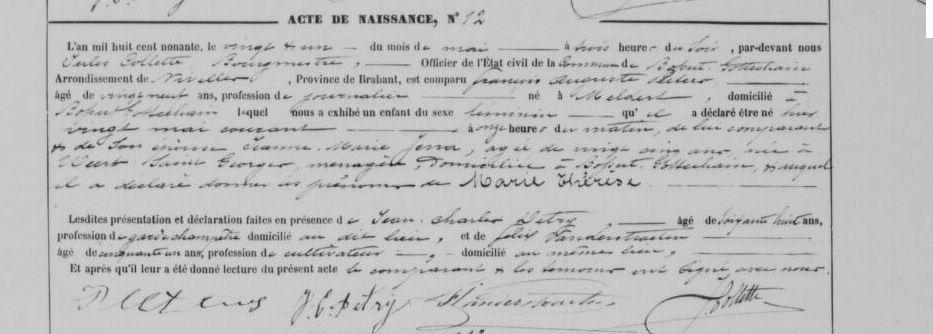 ACTE DE NAISSANCE, N° 12
L'an mil huit cent nonante, le vingt & un du mois de mai à trois heures du soir, par-devant nous
Jules Collette, Bourgmestre, Officier de l'Etat civil de la Commune de Bossut-Gottechain
Arrondissement de Nivelles, Province de Brabant, est comparu françois Auguste
âgé de vingt neuf ans, profession de journalier né à Meldert, domicilié à
Bossut Gottechain lequel nous a exhibé un enfant du sexe féminin qu'il a déclaré être né hier
vingt mai courant à onze heures du matin, de lui comparant
& de son épouse Jeanne Marie, âgée de vingt cinq ans, née à
Weert Saint Georges, menagère, domiciliée à Bossut Gottechain, & auquel
il a déclaré donner les prénoms de Marie Thérèse.
Lesdites présentation et déclaration faites en présence de Jean Charles Detry, âgé de soixante huit ans,
profession de garde champêtre domicilié au dit lieu, et de felix Vanderstraeten
âgé de cinquante un ans, profession de cultivateur, domicilié au même lieu,
Et après qu'il leur a été donné lecture du présent acte le comparant & les témoins ont signé avec nous.
J. C. Detry Vanderstraeten J. Collette